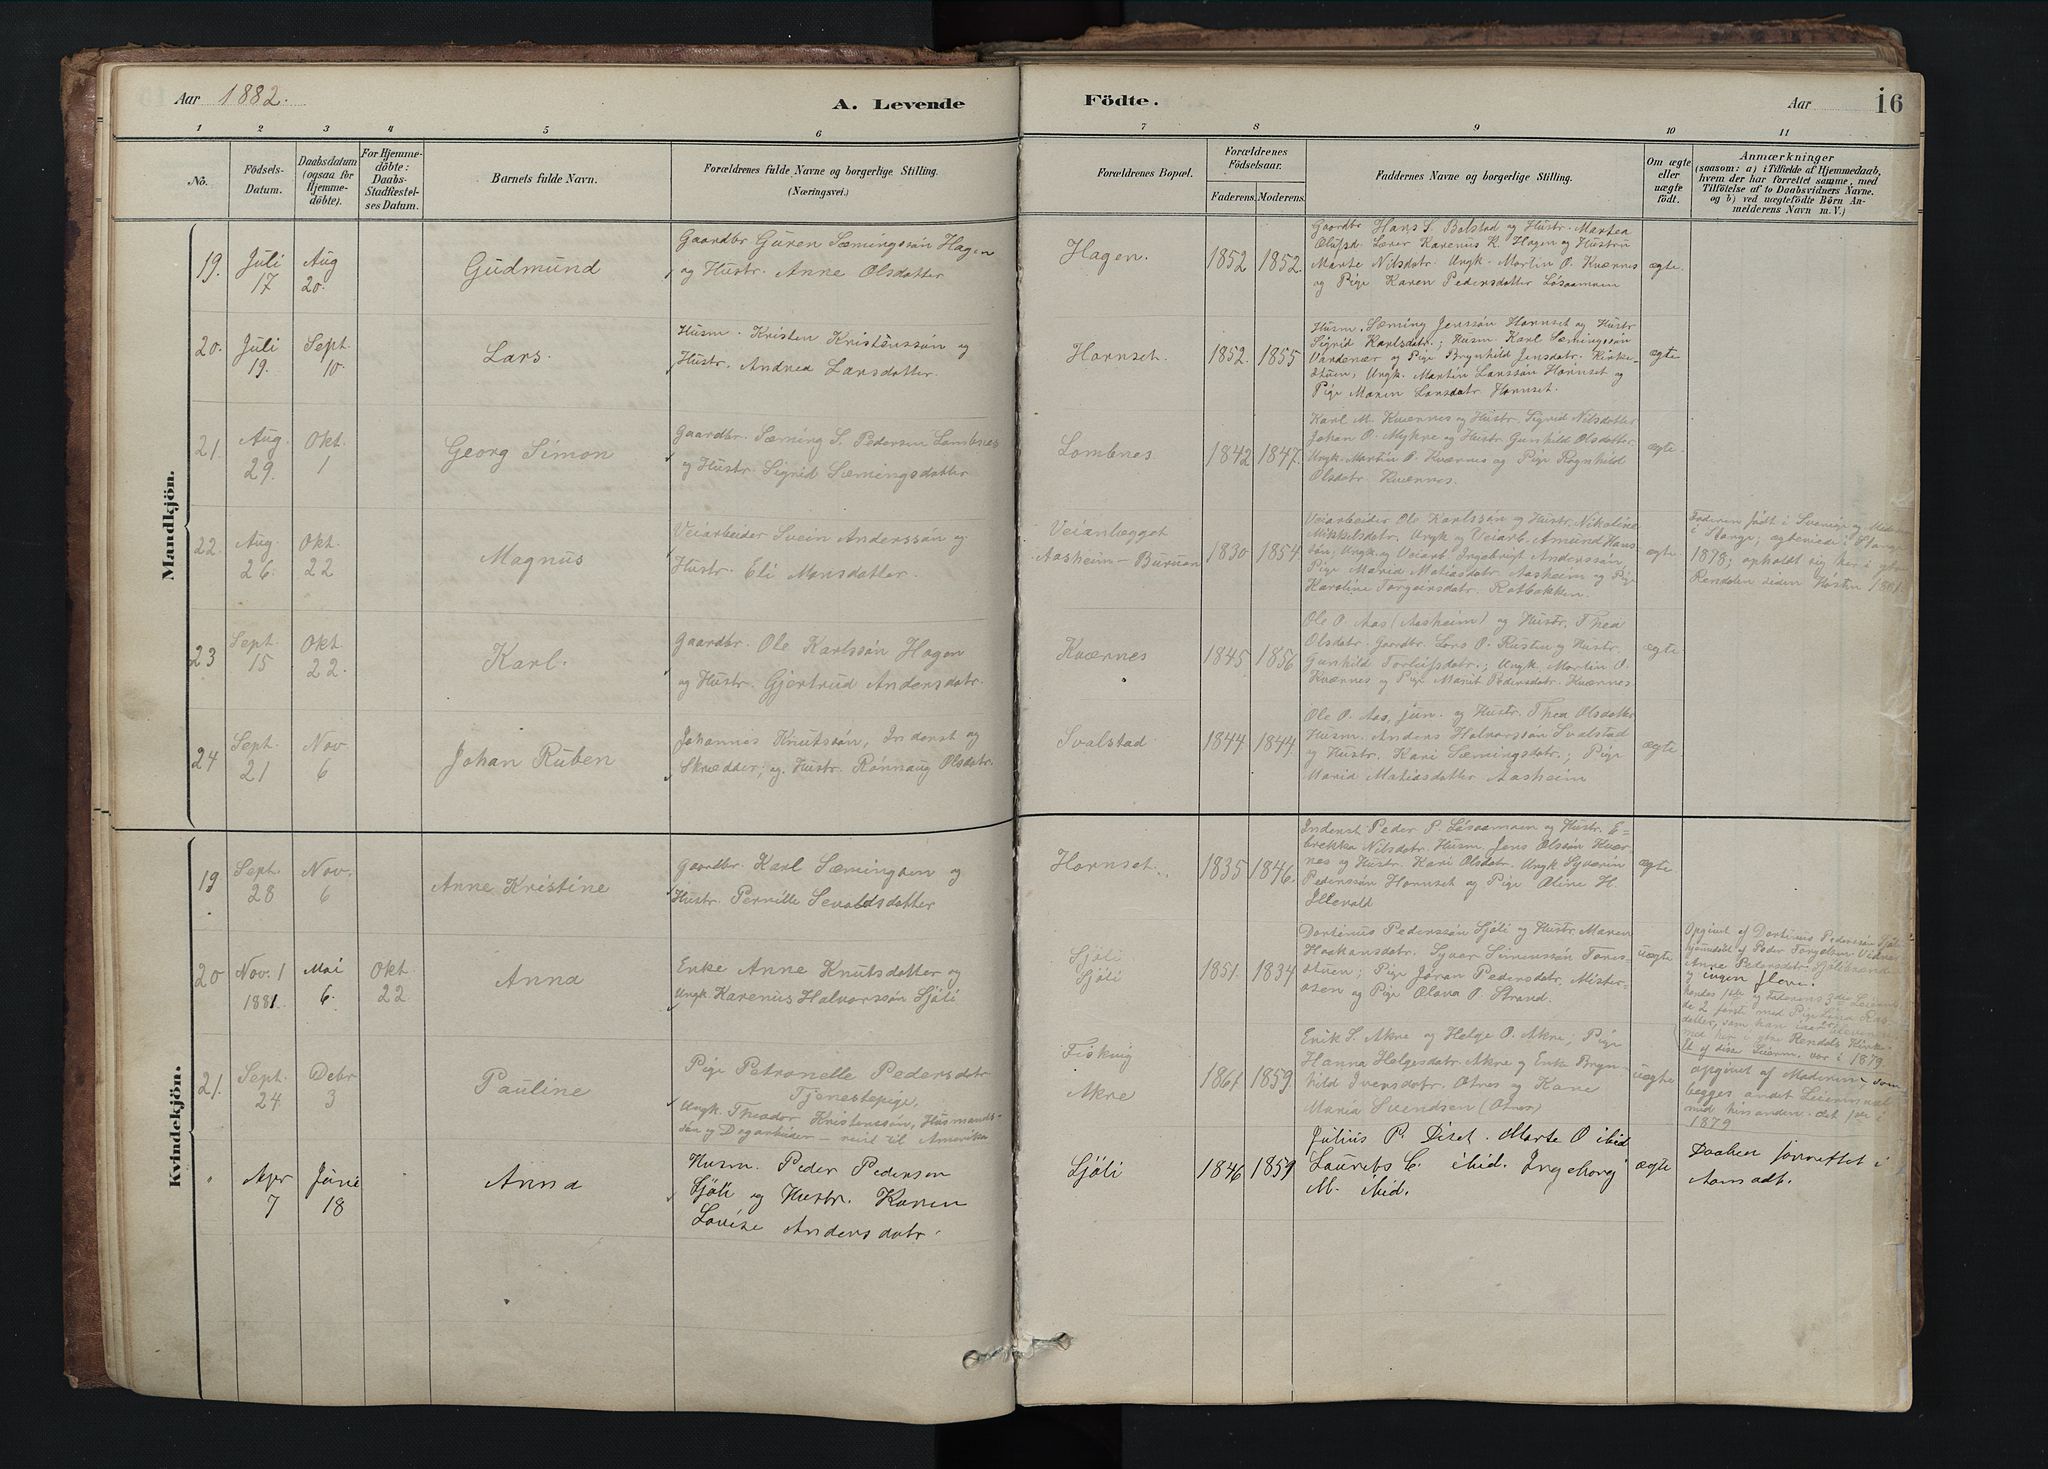 Aar 1882.
A. Levende
Födte.
Aar
16
1
2
3
4
5
6
7
8
9
10
11
No.
Födsels-
Datum.
Daabsdatum
(ogsaa for
Hjemme-
döbte).
For Hjemme-
döbte:
Daabs-
Stadfæstel-
ses Datum.
Barnets fulde Navn.
Forældrenes fulde Navne og borgerlige Stilling.
(Næringsvei.)
Forældrenes Bopæl.
Forældrenes
Födselsaar.
Faderens.
Moderens.
Faddernes Navne og borgerlige Stilling.
Om ægte
eller
uægte
födt.
Anmærkninger
(saasom: a) i Tilfælde af Hjemmedaab,
hvem der har forrettet samme, med
Tilföielse af to Daabsvidners Navne.
og b) ved uægtefödte Börn An-
melderens Navn m. V.)
Mandkjön.
19.
Juli
17
Aug
20.
Gudmund
Gaardbr Guren Sæmingssön Hagen
og Hustr. Anne Olsdatter
Hagen.
1852
1852.
Gaardbr Hans S. Bolstad og Hustr. Martea
Olufsd. Lærer Karenus K. Hagen og Hustru
Marte Nilsdatr. Ungk. Martin O. Kværnes
og Pige Karen Pedersdatter Lösaamoen
ægte.
20.
Juli
19.
Sept.
10.
Lars.
Husm. Kristen Kristenssön og
Hustr. Andrea Larsdatter.
Hornset.
1852.
1855
Husm. Sæming Jenssön Hornset og Hustr
Sigrid Karlsdatr.; Husm Karl Sæmingssön
Vardenær og Pige Brynhild Jensdatr. Kirke-
stuen, Ungk. Martin Larssön Hornset og
Pige Maren Larsdatr Hornset.
ægte
21.
Aug.
29.
Okt.
1
Georg Simon
Gaardbr. Sæming S. Pedersen Lombnes
og Hustr. Sigrid Sæmingsdatter
Lombnes
1842
1847.
Karl M. Kværnes og Hustr. Sigrid Nilsdatter
Johan O. Mykre og Hustr Gunhild Olsdatter
Ungk. Martin O. Kværnes og Pige Ragnhild
Olsdatr Kværnes.
ægte.
22.
Aug.
26.
Okt.
22
Magnus
Veiarbeider Svein Anderssön og
Hustr. Eli Monsdatter
Veianlægget
Aasheim-Buruen
1830
1854
Veiarbeider Ole Karlssön og Hustr. Nikoline
Mikkelsdatr. Ungk og Veiarb. Amund Hans-
sön, Ungk. og Veiarb. Ingebrigt Anderssön,
Pige Maria Matiasdatr. Aasheim og Pige
Karoline Torgeirsdatr. Rotbakken.
ægte
Faderen födt i Sverige og Moderen
i Stange; ægteviede i Stange
1878; opholdt sig her i ytre
Rendalen siden Hösten 1881.
23
Sept.
15
Okt
22.
Karl.
Gaardbr. Ole Karlssön Hagen
og Hustr. Gjertrud Andersdatr.
Kværnes
1845
1856
Ole O. Aas (Aasheim) og Hustr. Thea
Olsdatr. Gardbr. Lars O. Rusten og Hustr.
Gunhild Torleifsdatr.; Ungk. Martin O.
Kværnes og Pige Marit Pedersdatr. Kværnes.
ægte
24
Sept.
21
Nov.
6
Johan Ruben
Johannes Knutssön, Inderst og
Skrædder; og Hustr. Rönnaug Olsdatr.
Svalstad
1844
1844
Ole O. Aas, jun. og Hustr. Thea Olsdatter
Husm. Anders Halvorssön Svalstad
og Hustr. Kari Sæmingsdatr.; Pige
Maria Matiasdatter Aasheim
ægte
Kvindekjön.
19
Sept.
28
Nov.
6
Anne Kristine
Gaardbr. Karl Sæmingsen og
Hustr. Pernille Sevaldsdatter
Hornset.
1835
1846.
Inderst Peder P. Lösaamoen og Hustr. E-
brekka Nilsdatr. Husm. Jens Olssön Kvær-
nes og Hustr. Kari Olsdatr. Ungk Syverin
Pederssön Hornset og Pige Oline H.
Illevold
ægte
20
Nov. 1
1881.
Mai
6.
Okt
22
Anna
Enke Anne Knutsdatter og
Ungk. Karenus Halvorssön Sjöli
Sjöli
Sjöli
1851.
1834
Dortinus Pederssön Sjöli og Hustr Maren
Haakansdatr. Syver Simenssön Tores-
stuen; Pige Jöran Pedersdatr. Mister-
osen og Pige Olava O. Strand.
uægte
Opgivet af Dortinus Pederssön Sjöli
hjemmdöbt af Peder Torgalsen Vidner
Anne Petersdatr. Sjölistrande
og ingen flere.
hendes 1ste og Faderens 3die Leierm.
de 2 först med Pige Lina Ras-
datter, som han
med her i ytre Rendals Kirke
It af disse Leierm. vor i 1879.
21.
Sept.
24
Debr
3
Pauline
Pige Petronelle Pedersdatr
Tjenestepige,
Ungk. Theodor Kristenssön, Husmands-
sön og Dagarbeider – reist til Amerika
Fiskvig
Akre
1861
1859
Erik S. Akre og Helge O. Akre, Pige
Hanna Helgesdatr. Akre og Enke Bryn-
hild Iversdatr. Otnes og Kone
Maria Svendsen (Otnes)
uægte
opgivet af Moderen, som
begges andet Leiermaal
med hinanden. det 1ste i
1879
"
Apr
7
Juni
18
Anna
Husm. Peder Pedersen
Sjöli og Hustr. Karen
Lovise Andersdatr.
Sjöli
1846
1859
Julius P. Diset. Marte O ibid
Laurets C. ibid. Ingeborg
M. ibid.
ægte
Daaben forrettet i
Aamodt.